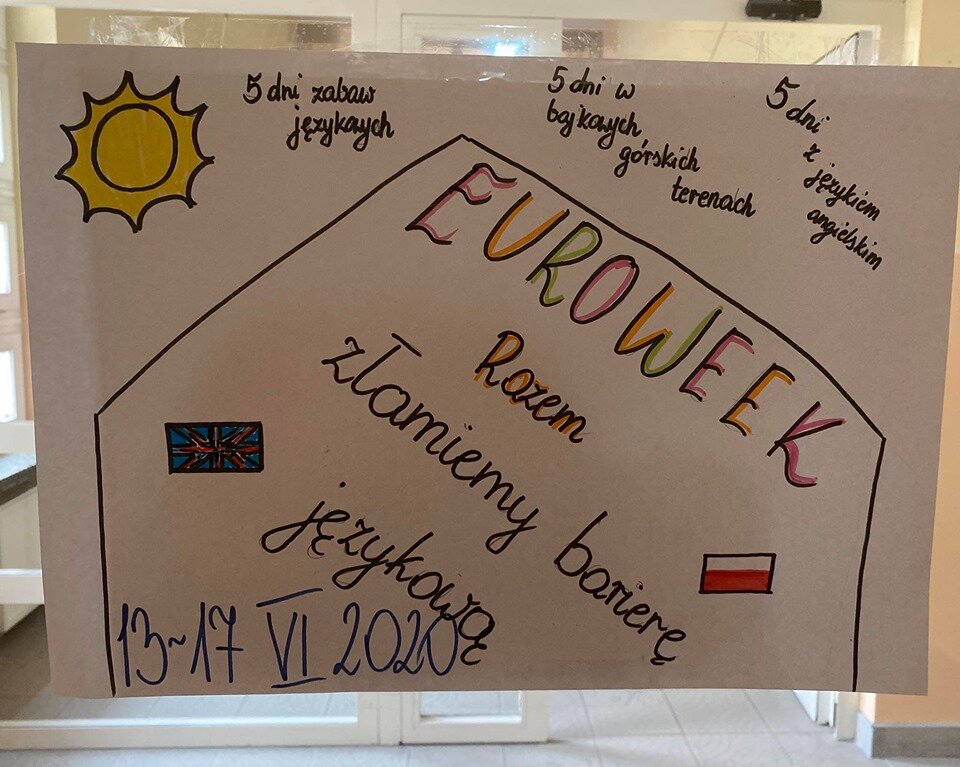 5 dni zabaw
językowych
5 dni w
bajkowych
górskich
terenach
5 dni
z
językiem
angielskim
EUROWEEK
Razem
złamiemy barierę
językową
13-17 VI 2020